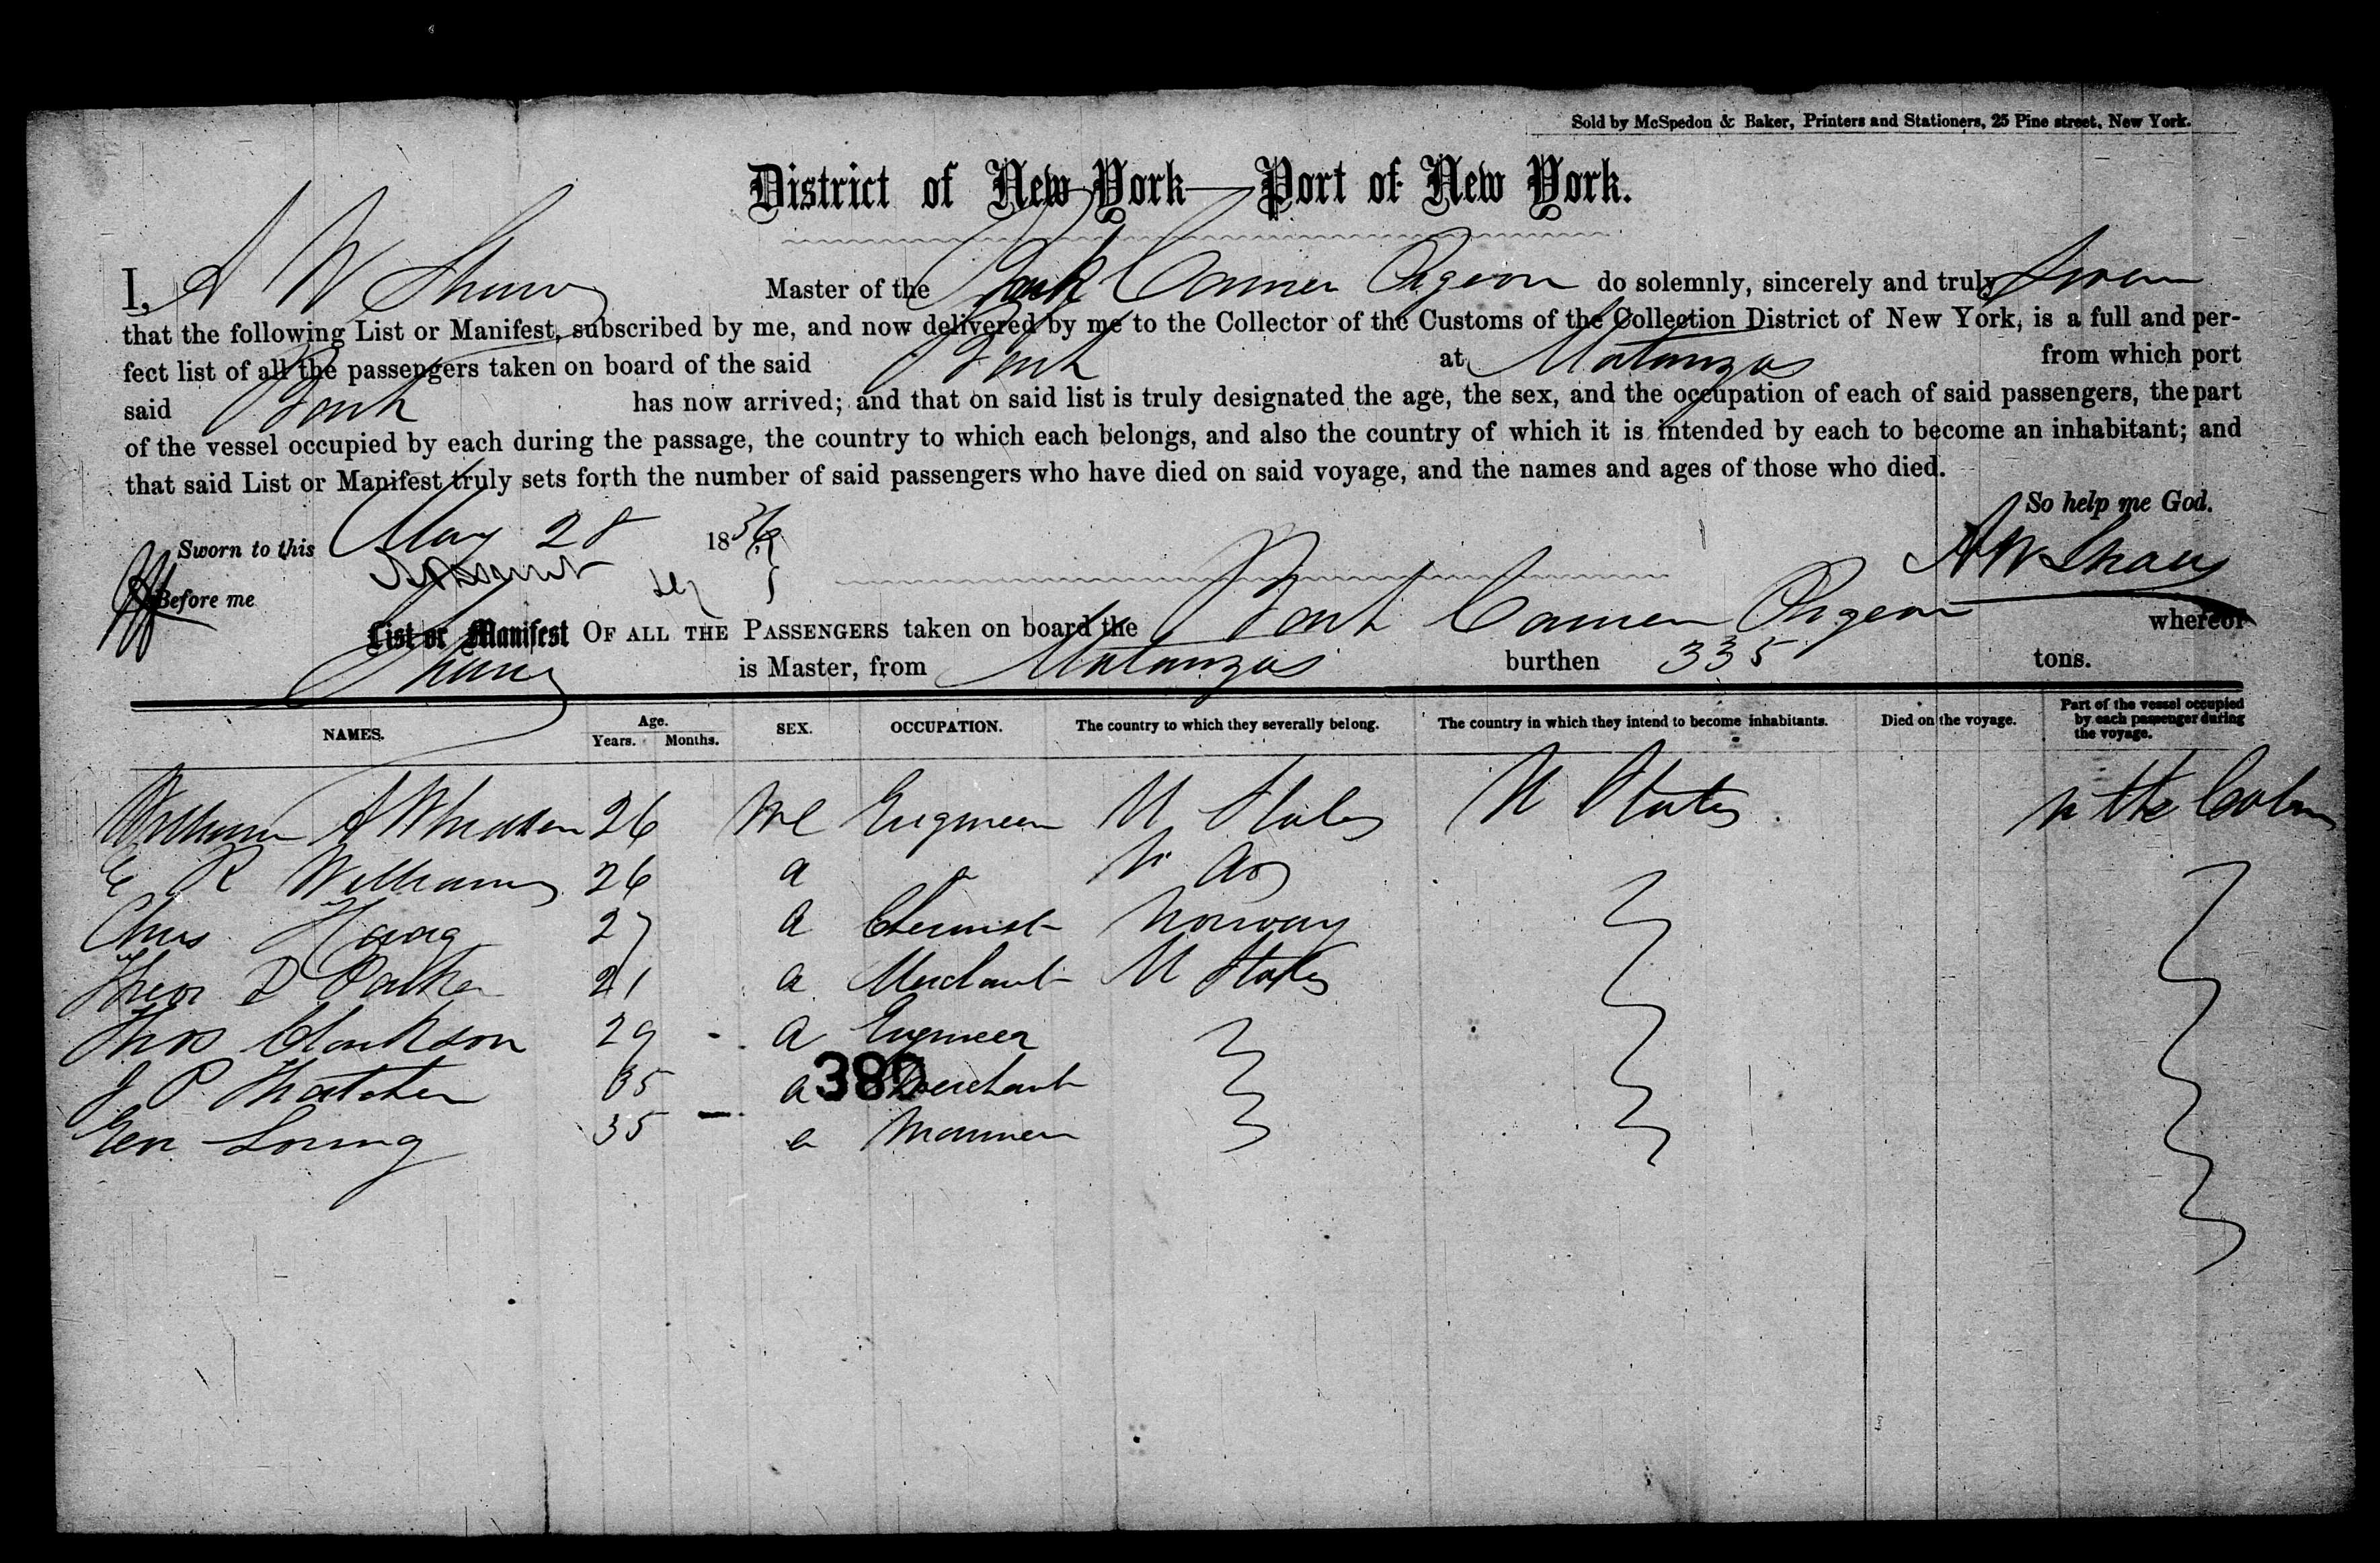 Sold by McSpedon & Baker, Printers and Stationers, 25 Pine street, New York.
District of New York—Port of New York.
I, A W Master of the Bark Carrier Pigeon do solemnly, sincerely and truly swear
that the following List or Manifest, subscribed by me, and now delivered by me to the Collector of the Customs of the Collection District of New York, is a full and per-
fect list of all the passengers taken on board of the said Bark at Matanzas from which port
said Bark has now arrived; and that on said list is truly designated the age, the sex, and the occupation of each of said passengers, the part
of the vessel occupied by each during the passage, the country to which each belongs, and also the country of which it is intended by each to become an inhabitant; and
that said List or Manifest truly sets forth the number of said passengers who have died on said voyage, and the names and ages of those who died.
So help me God.
Sworn to this May 28 1856
Before me
List or Manifest OF ALL THE PASSENGERS taken on board the Bark Carrier Pigeon whereof
is Master, from Matanzas burthen 335 tons.
NAMES. Age. Years. Months. SEX. OCCUPATION. The country to which they severally belong. The country in which they intend to become inhabitants. Died on the voyage. Part of the vessel occupied by each passenger during the voyage.
William A 26 Engineer U States U States in the Cabin
E R Williams 26 a " do
Chas Haag 27 a Chemist Norway
Theo D Parker 21 a Merchant U States
Thos Clarkson 29 - a Engineer
J P Thatcher 35 a Merchant
380
Geo Loring 35 — a Mariner